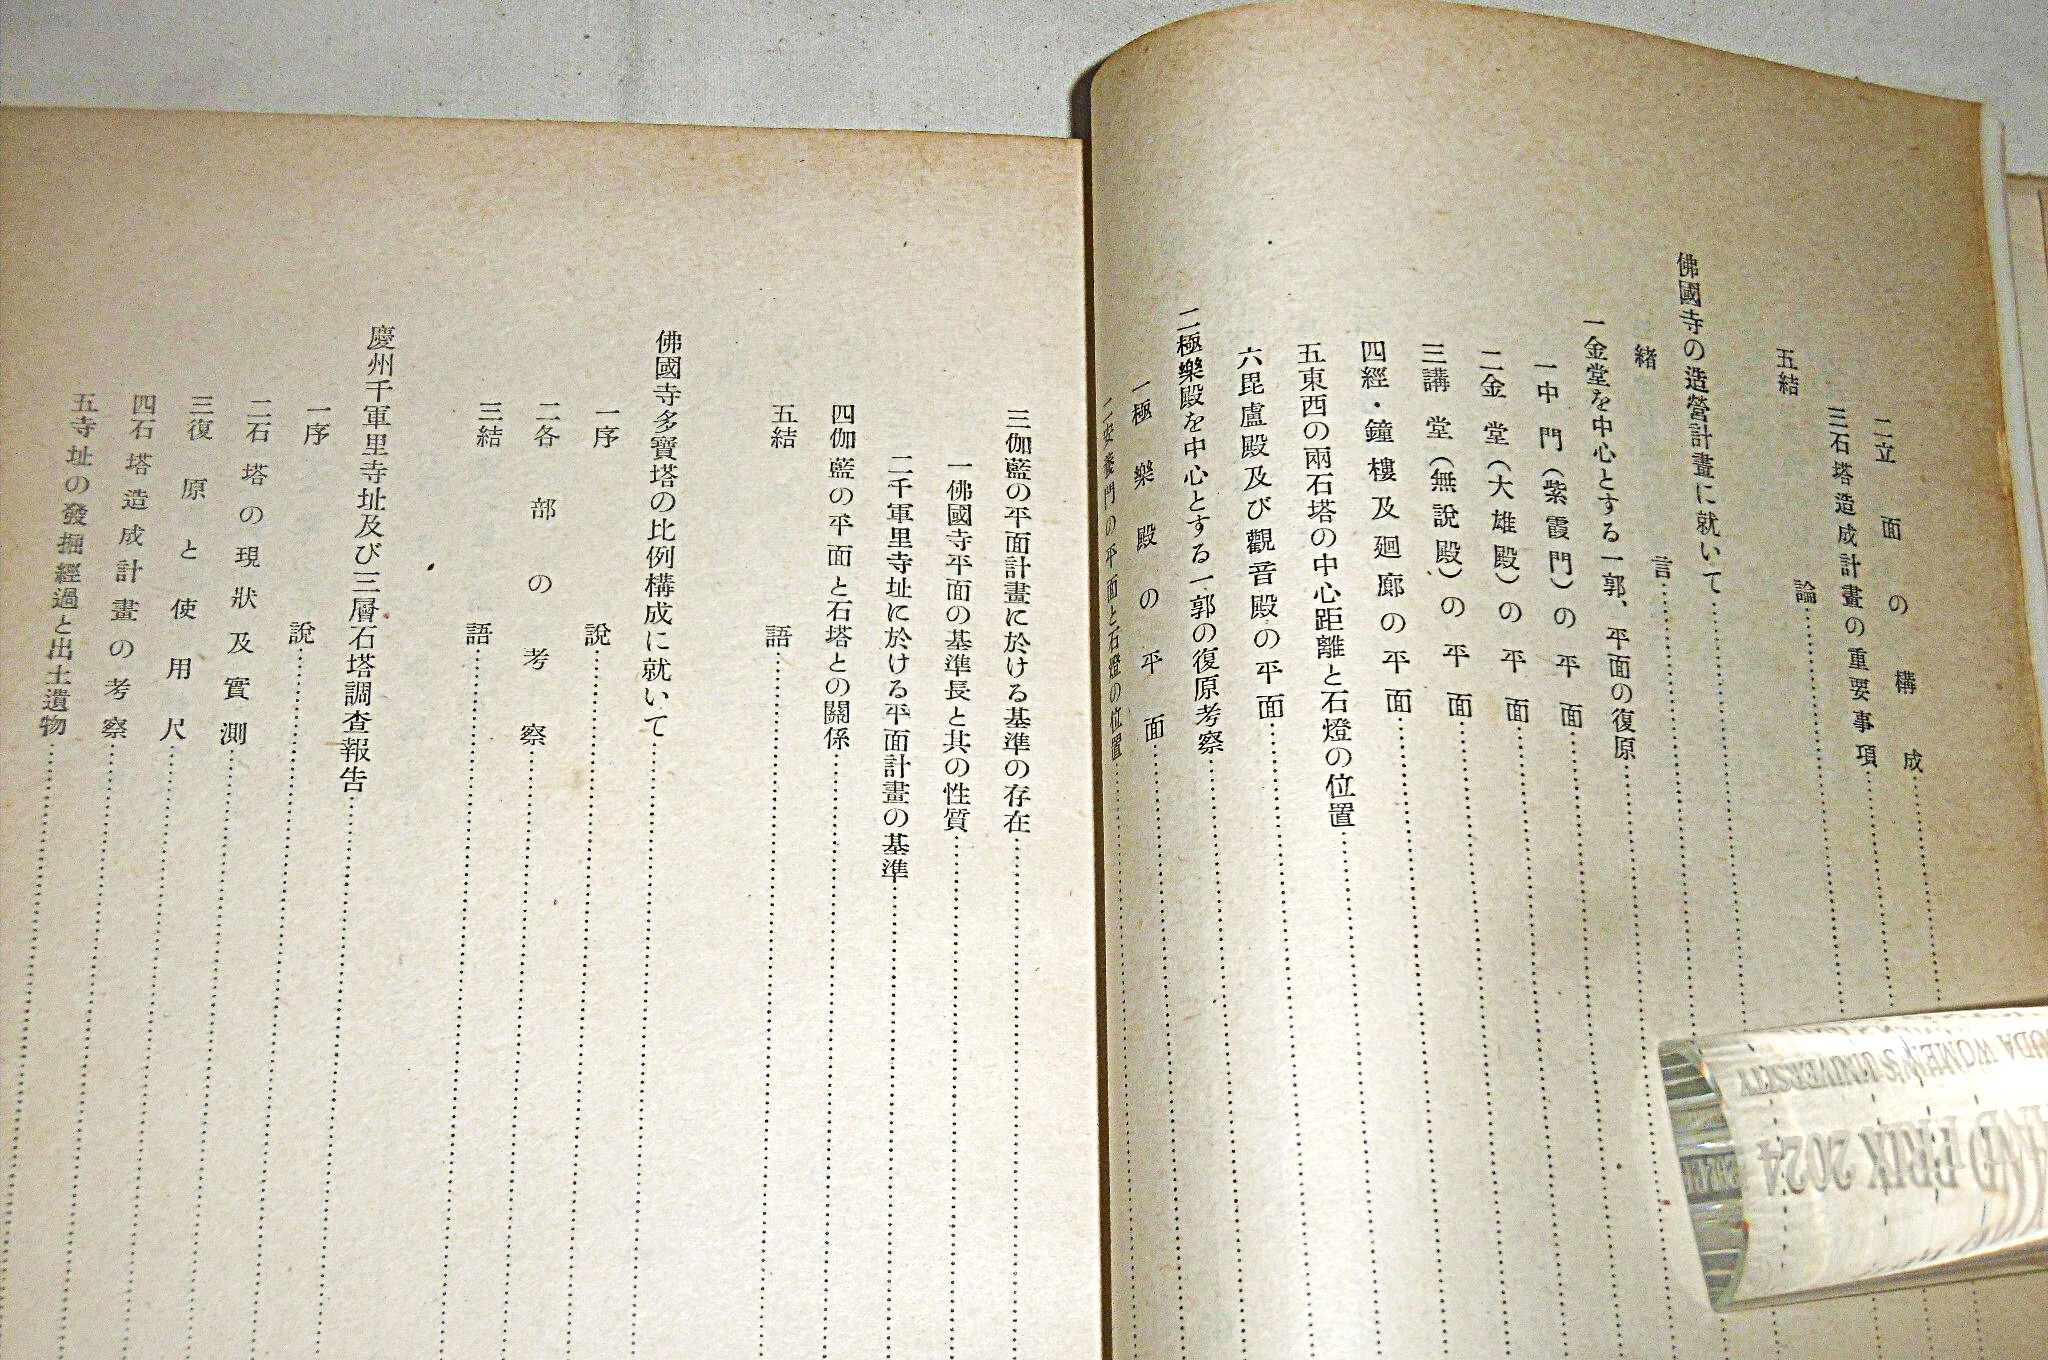 二立面の構成
三石塔造成計畫の重要事項
五結論
佛國寺の造營計畫に就いて
緒言
一金堂を中心とする一郭、平面の復原
一中門(紫霞門)の平面
二金堂(大雄殿)の平面
三講堂(無說殿)の平面
四經・鐘樓及廻廊の平面
五東西の兩石塔の中心距離と石燈の位置
六毘盧殿及び觀音殿の平面
二極樂殿を中心とする一郭の復原考察
一極樂殿の平面
二安養門の平面と石燈の位置
三伽藍の平面計畫に於ける基準の存在
一佛國寺平面の基準長と其の性質
二千軍里寺址に於ける平面計畫の基準
四伽藍の平面と石塔との關係
五結語
佛國寺多寶塔の比例構成に就いて
一序說
二各部の考察
三結語
慶州千軍里寺址及び三層石塔調査報告
一序說
二石塔の現狀及實測
三復原と使用尺
四石塔造成計畫の考察
五寺址の發掘經過と出土遺物
UDA WOMEN'S UNIVERSITY
ND PRIX 2024